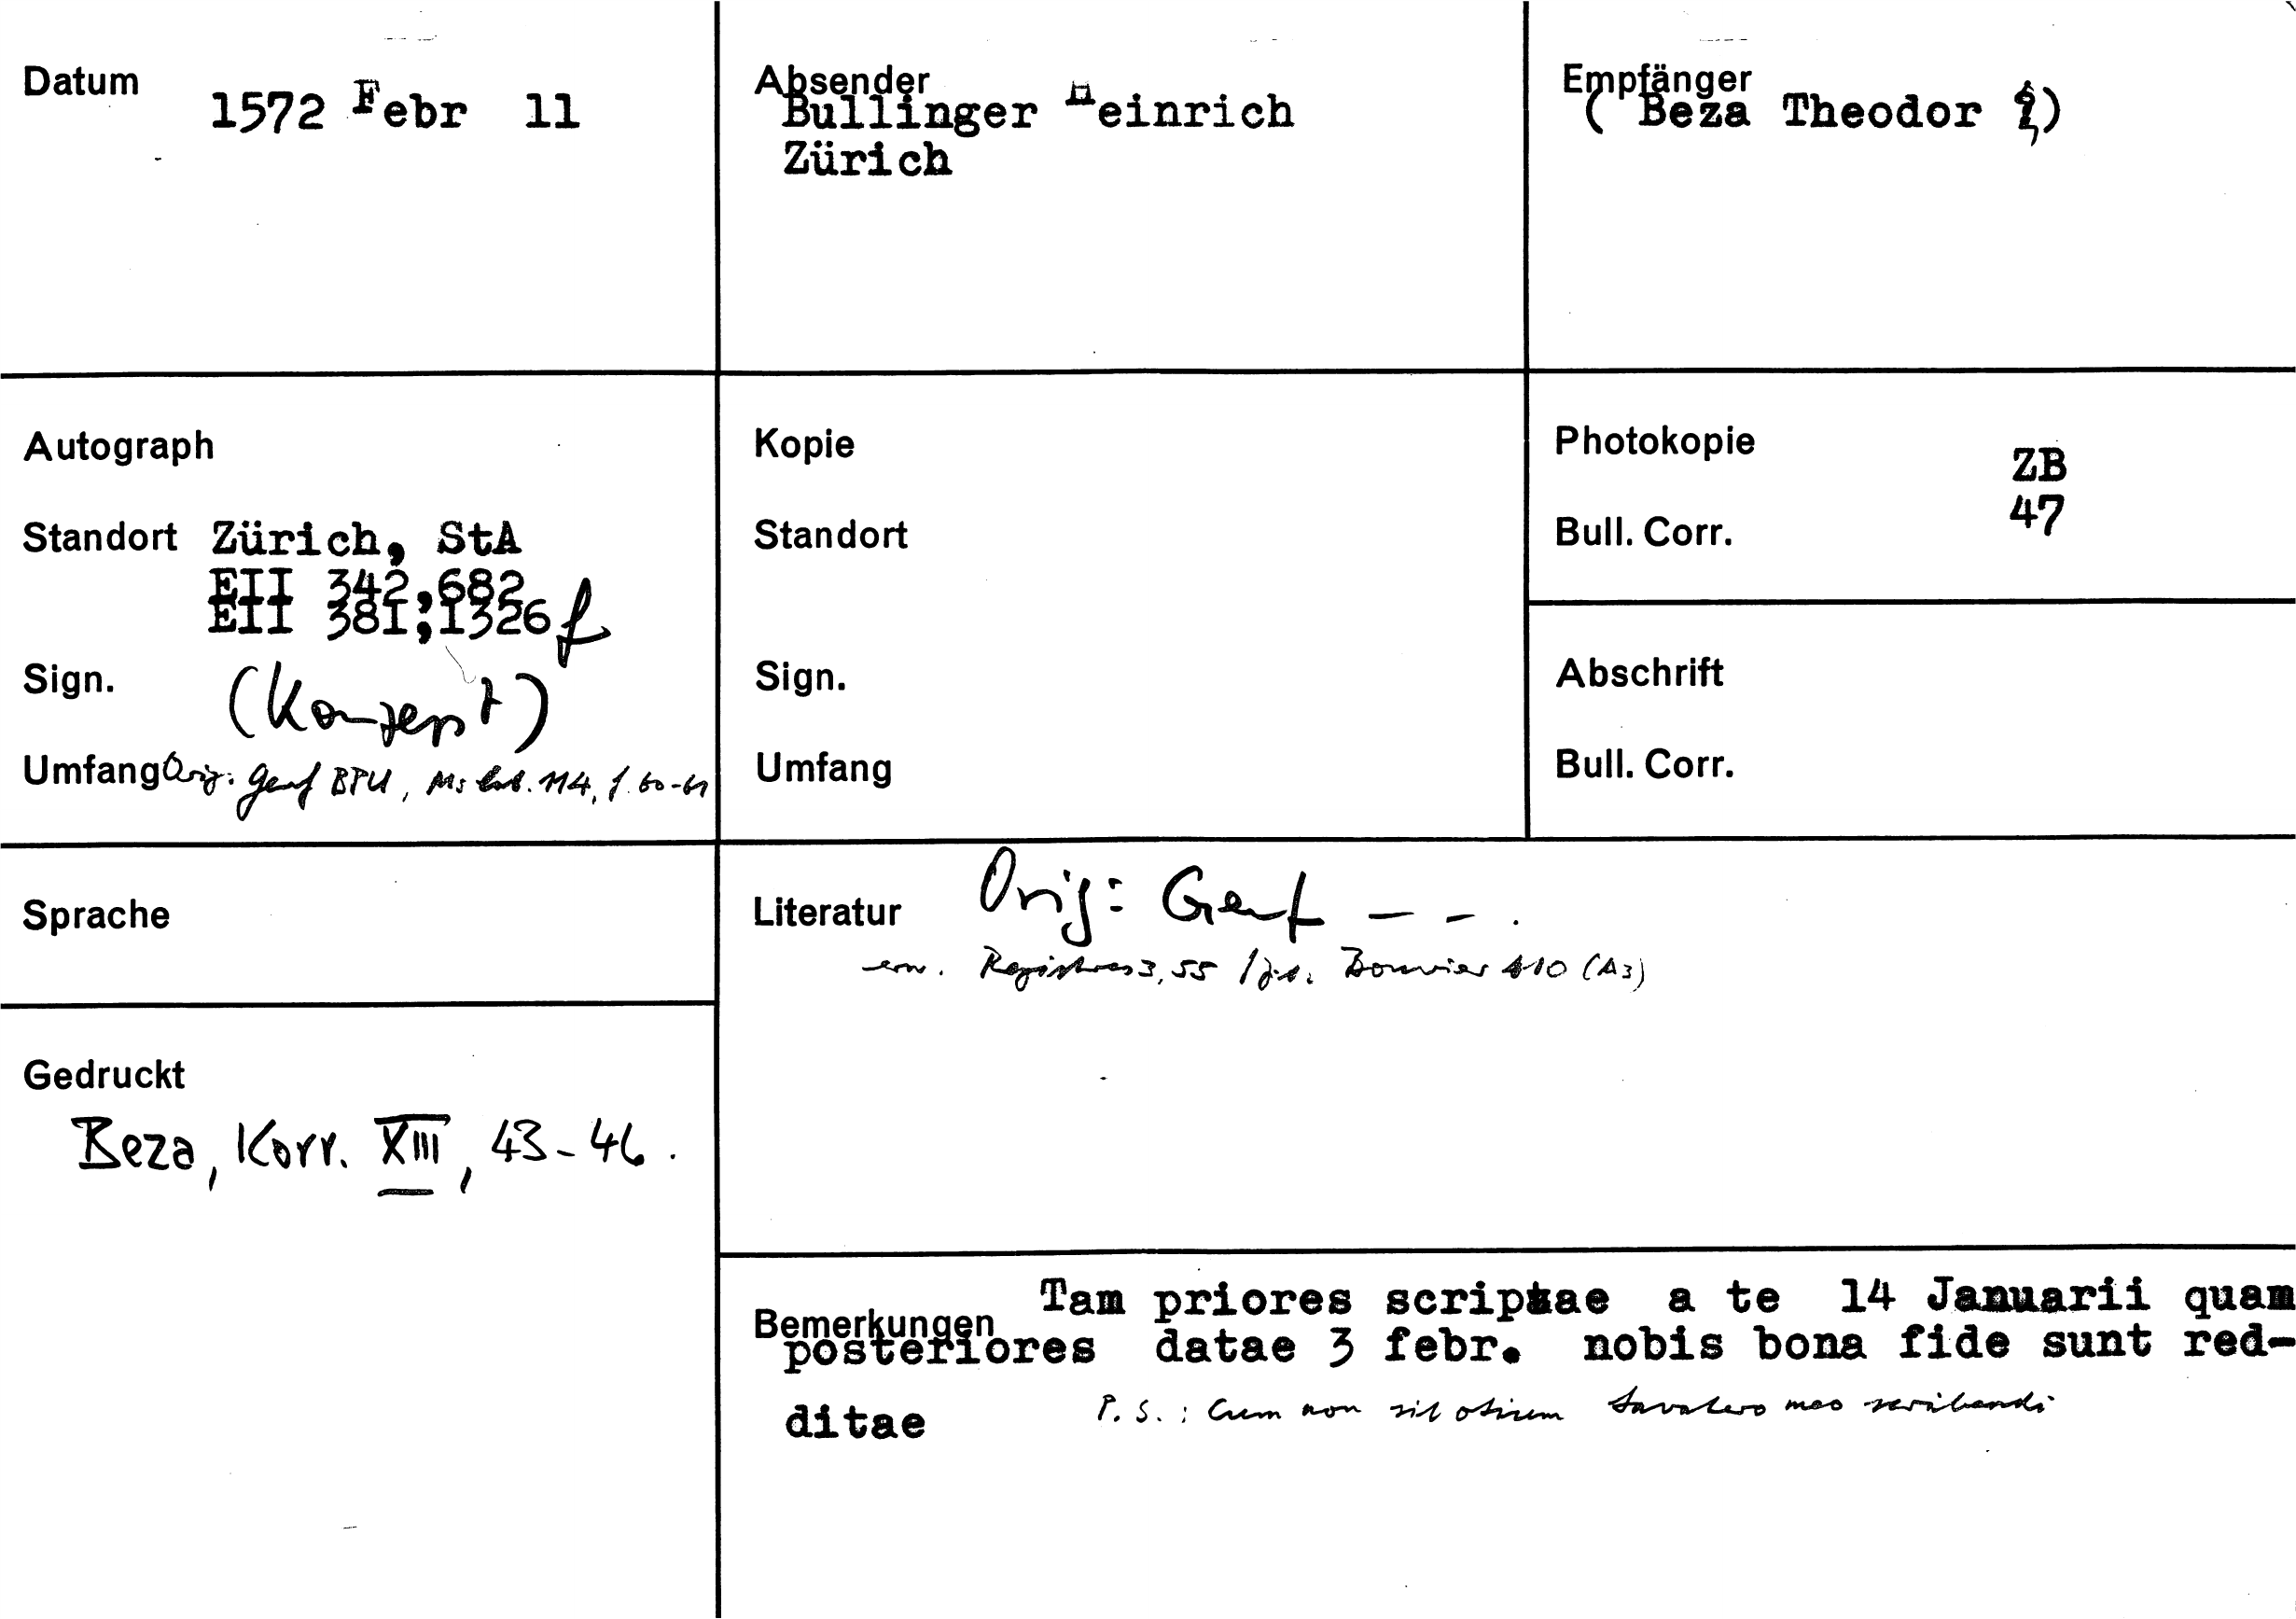 Datum 1572 Febr 11
Absender
Bullinger Heinrich
Zürich
Empfänger
( Beza Theodor )
Autograph
Standort Zürich, StA
EII 342,682
EII 381,1326 f
Sign. (Konzept)
Umfang Orig: Genf BPU, Ms lat. 114, f. 60-61
Kopie
Standort
Sign.
Umfang
Photokopie ZB
Bull. Corr. 47
Abschrift
Bull. Corr.
Sprache
Gedruckt
Beza, Korr. XIII, 43-46.
Literatur Orig: Genf - - .
erw. Registres 3, 55 Bouvier 410 (A3)
Bemerkungen Tam priores scriptae a te 14 Januarii quam
posteriores datae 3 febr. nobis bona fide sunt red-
ditae P. S.: Cum non sit otium meo scribendi